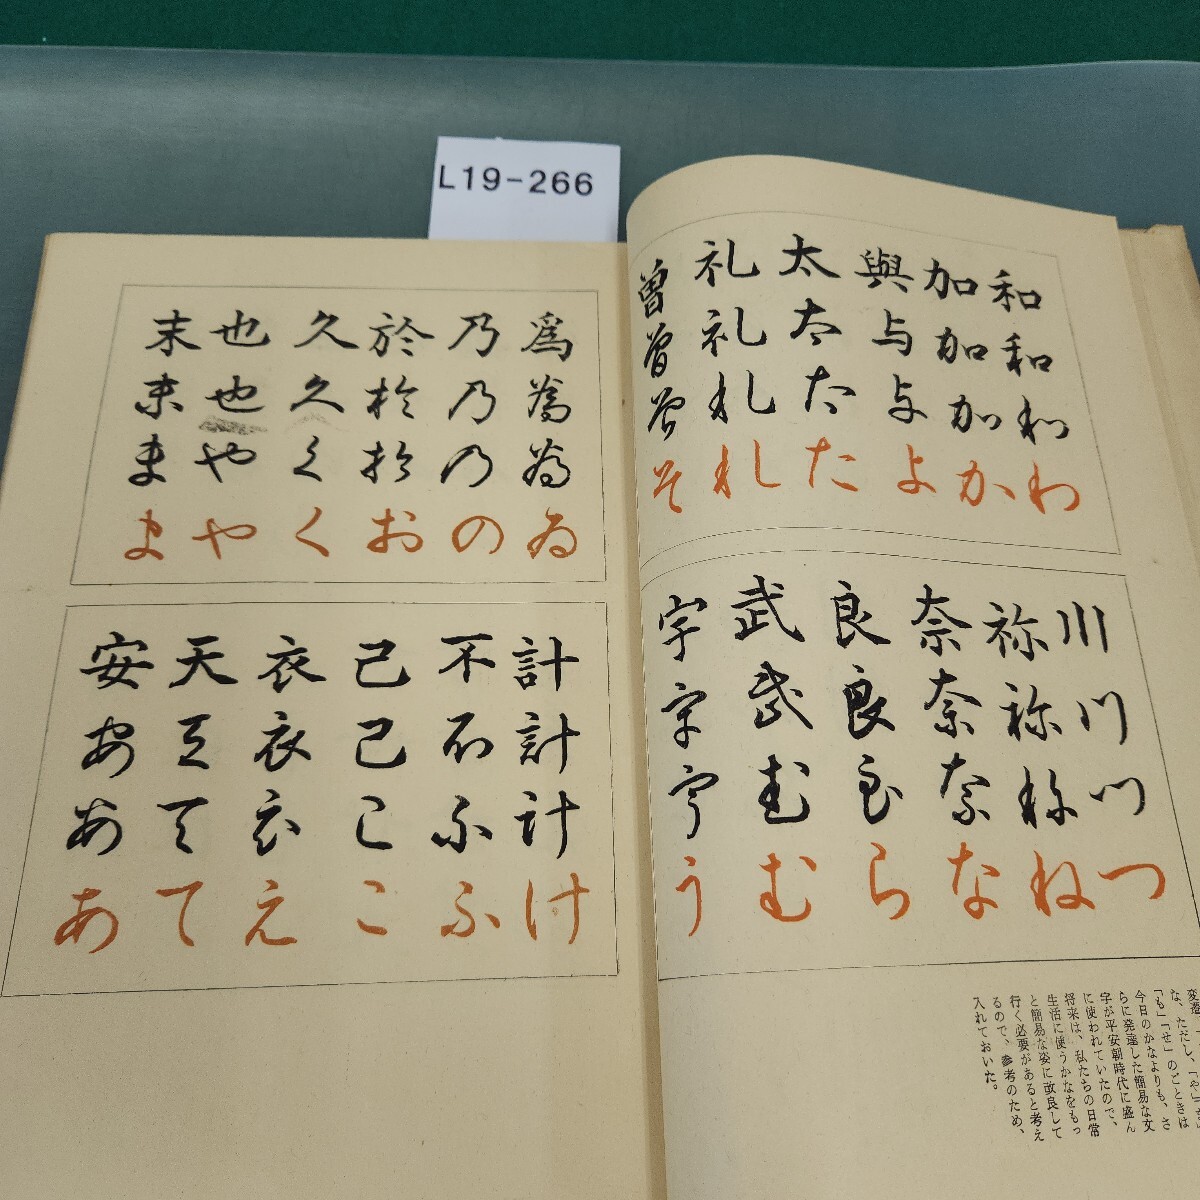 L19-266
和和和わ
加加加か
與与与よ
太太太た
礼礼礼れ
曽曽曽そ
川川川つ
祢祢祢ね
奈奈奈な
良良良ら
武武武む
宇宇宇う
変遷
な、ただし、「や」
「も」「せ」のごときは
今日のかなよりも、さ
らに発達した簡易な文
字が平安朝時代に盛ん
に使われていたので、
将来は、私たちの日常
生活に使うかなをもっ
と簡易な姿に改良して
行く必要があると考え
るので、参考のため、
入れておいた。
爲為為ゐ
乃乃乃の
於於於お
久久久く
也也やや
末末末ま
計計計け
不不ふふ
己己ここ
衣衣衣え
天天天て
安安安あ